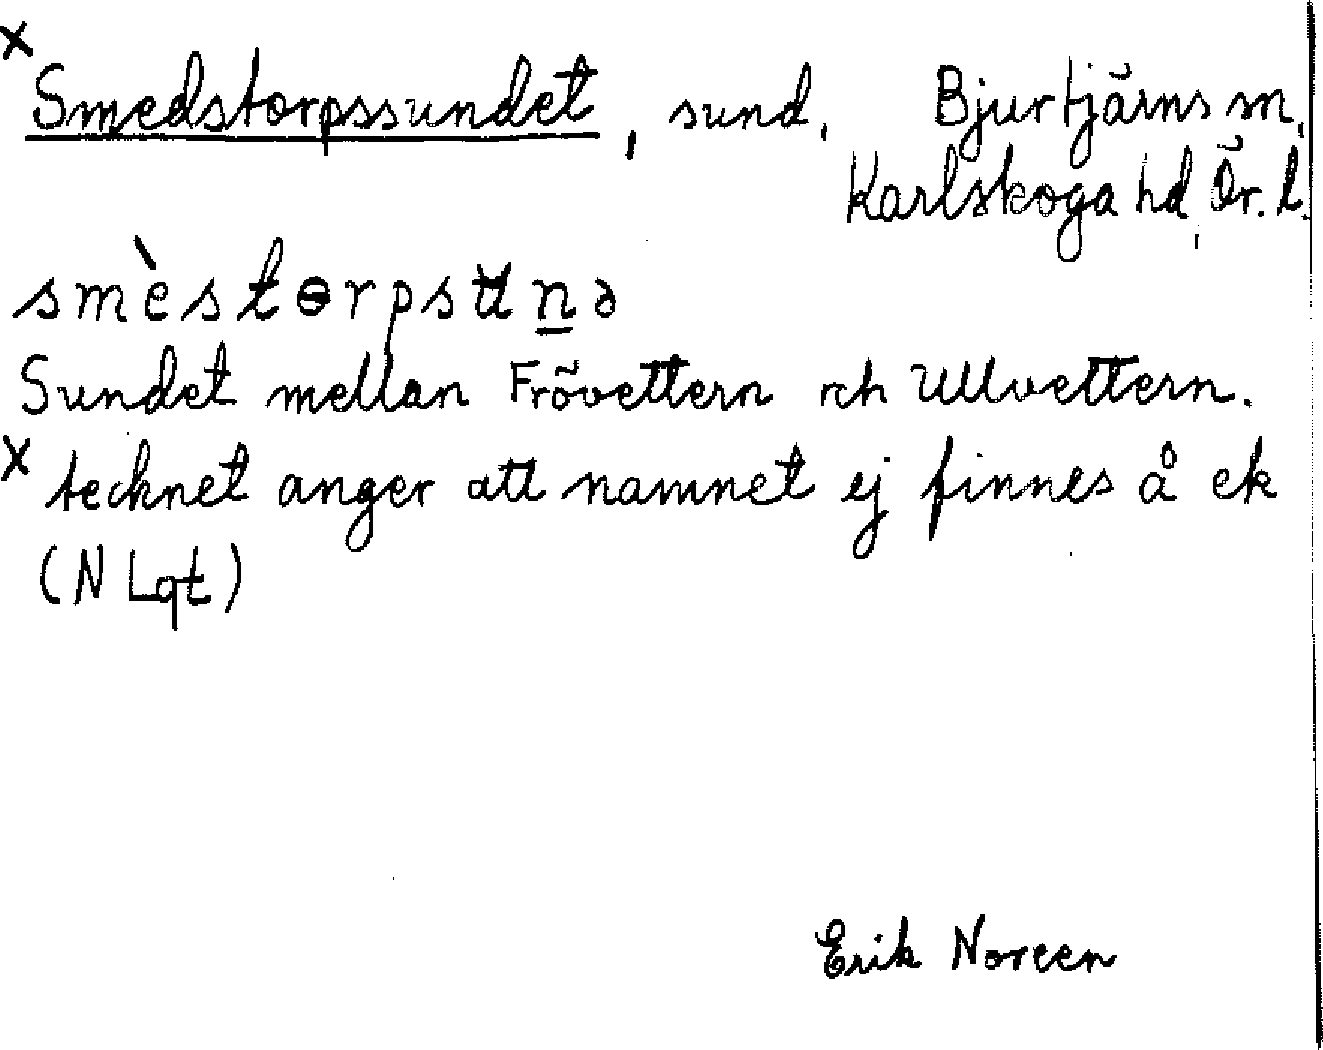 x Smedstorpssundet, sund, Bjurtjärns sn,
Karlskoga hd, Ör. l.
smèstɵrpsʉn̲ə
Sundet mellan Frövettern och Ullvettern.
x tecknet anger att namnet ej finnes å ek
(N Lqt)
Erik Noreen